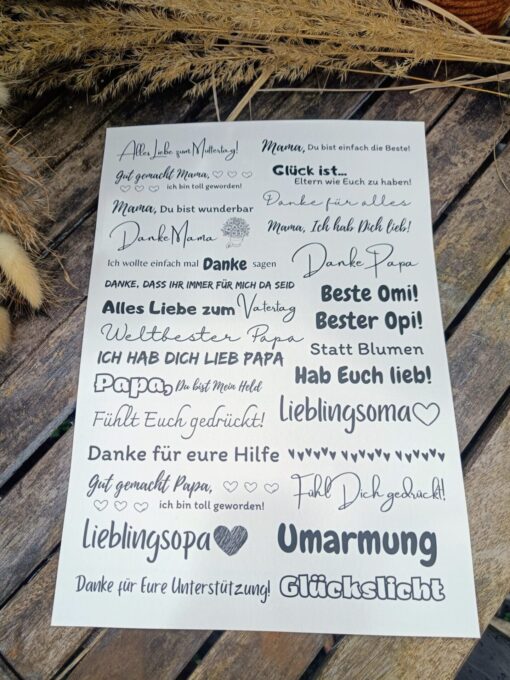 Alles Liebe zum Muttertag!
Gut gemacht Mama, ♡ ♡ ♡
♡ ♡ ♡ ich bin toll geworden!
Mama, Du bist wunderbar
Danke Mama
Ich wollte einfach mal Danke sagen
DANKE, DASS IHR IMMER FÜR MICH DA SEID
Alles Liebe zum Vatertag
Weltbester Papa
ICH HAB DICH LIEB PAPA
Papa, Du bist Mein Held
Fühlt Euch gedrückt!
Danke für eure Hilfe
Gut gemacht Papa, ♡ ♡ ♡
♡ ♡ ♡ ich bin toll geworden!
Lieblingsopa
Danke für Eure Unterstützung!
Mama, Du bist einfach die Beste!
Glück ist...
Eltern wie Euch zu haben!
Danke für alles
Mama, Ich hab Dich lieb!
Danke Papa
Beste Omi!
Bester Opi!
Statt Blumen
Hab Euch lieb!
Lieblingsoma♡
Fühl Dich gedrückt!
Umarmung
Glückslicht